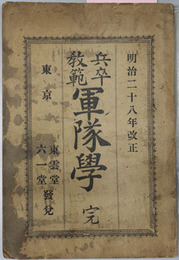 明治二十八年改正
兵卒
教範
軍隊學 完
東京
東雲堂
六一堂
發兌